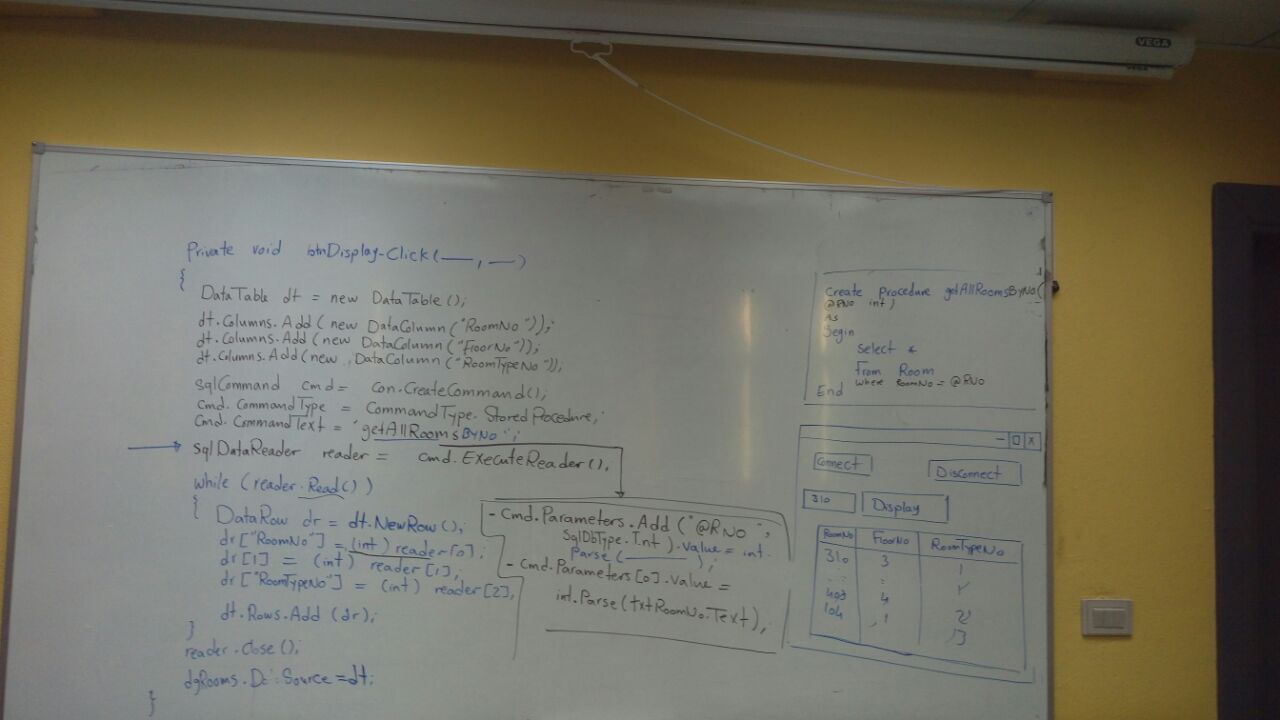 VEGA
VEGA
Private void btnDisplay-Click( __ , __ )
{
DataTable dt = new DataTable();
dt.Columns.Add( new DataColumn("RoomNo"));
dt.Columns.Add( new DataColumn("FloorNo"));
dt.Columns.Add(new DataColumn("RoomTypeNo"));
SqlCommand cmd = con.CreateCommand();
cmd.CommandType = CommandType.StoredProcedure;
cmd.CommandText = "getAllRoomsByNo";
sqlDataReader reader = cmd.ExecuteReader();
while (reader.Read())
{
DataRow dr = dt.NewRow();
dr["RoomNo"] = (int) reader[0];
dr[1] = (int) reader[1];
dr["RoomTypeNo"] = (int) reader[2];
dt.Rows.Add (dr);
}
reader.close();
dgRooms. :Source = dt;
}
- cmd.Parameters.Add ("@RNo",
SqlDbType.Int).value = int.
Parse( ____ );
- cmd.Parameters[0].value =
int.Parse(txtRoomNo.Text);
Create Procedure getAllRoomsByNo(
@RNo int)
as
Begin
select *
from Room
where RoomNo = @RNo
End
- X
Connect Disconnect
310 Display
RoomNo FloorNo RoomTypeNo
310 3 1
403 4
104 1 2
3